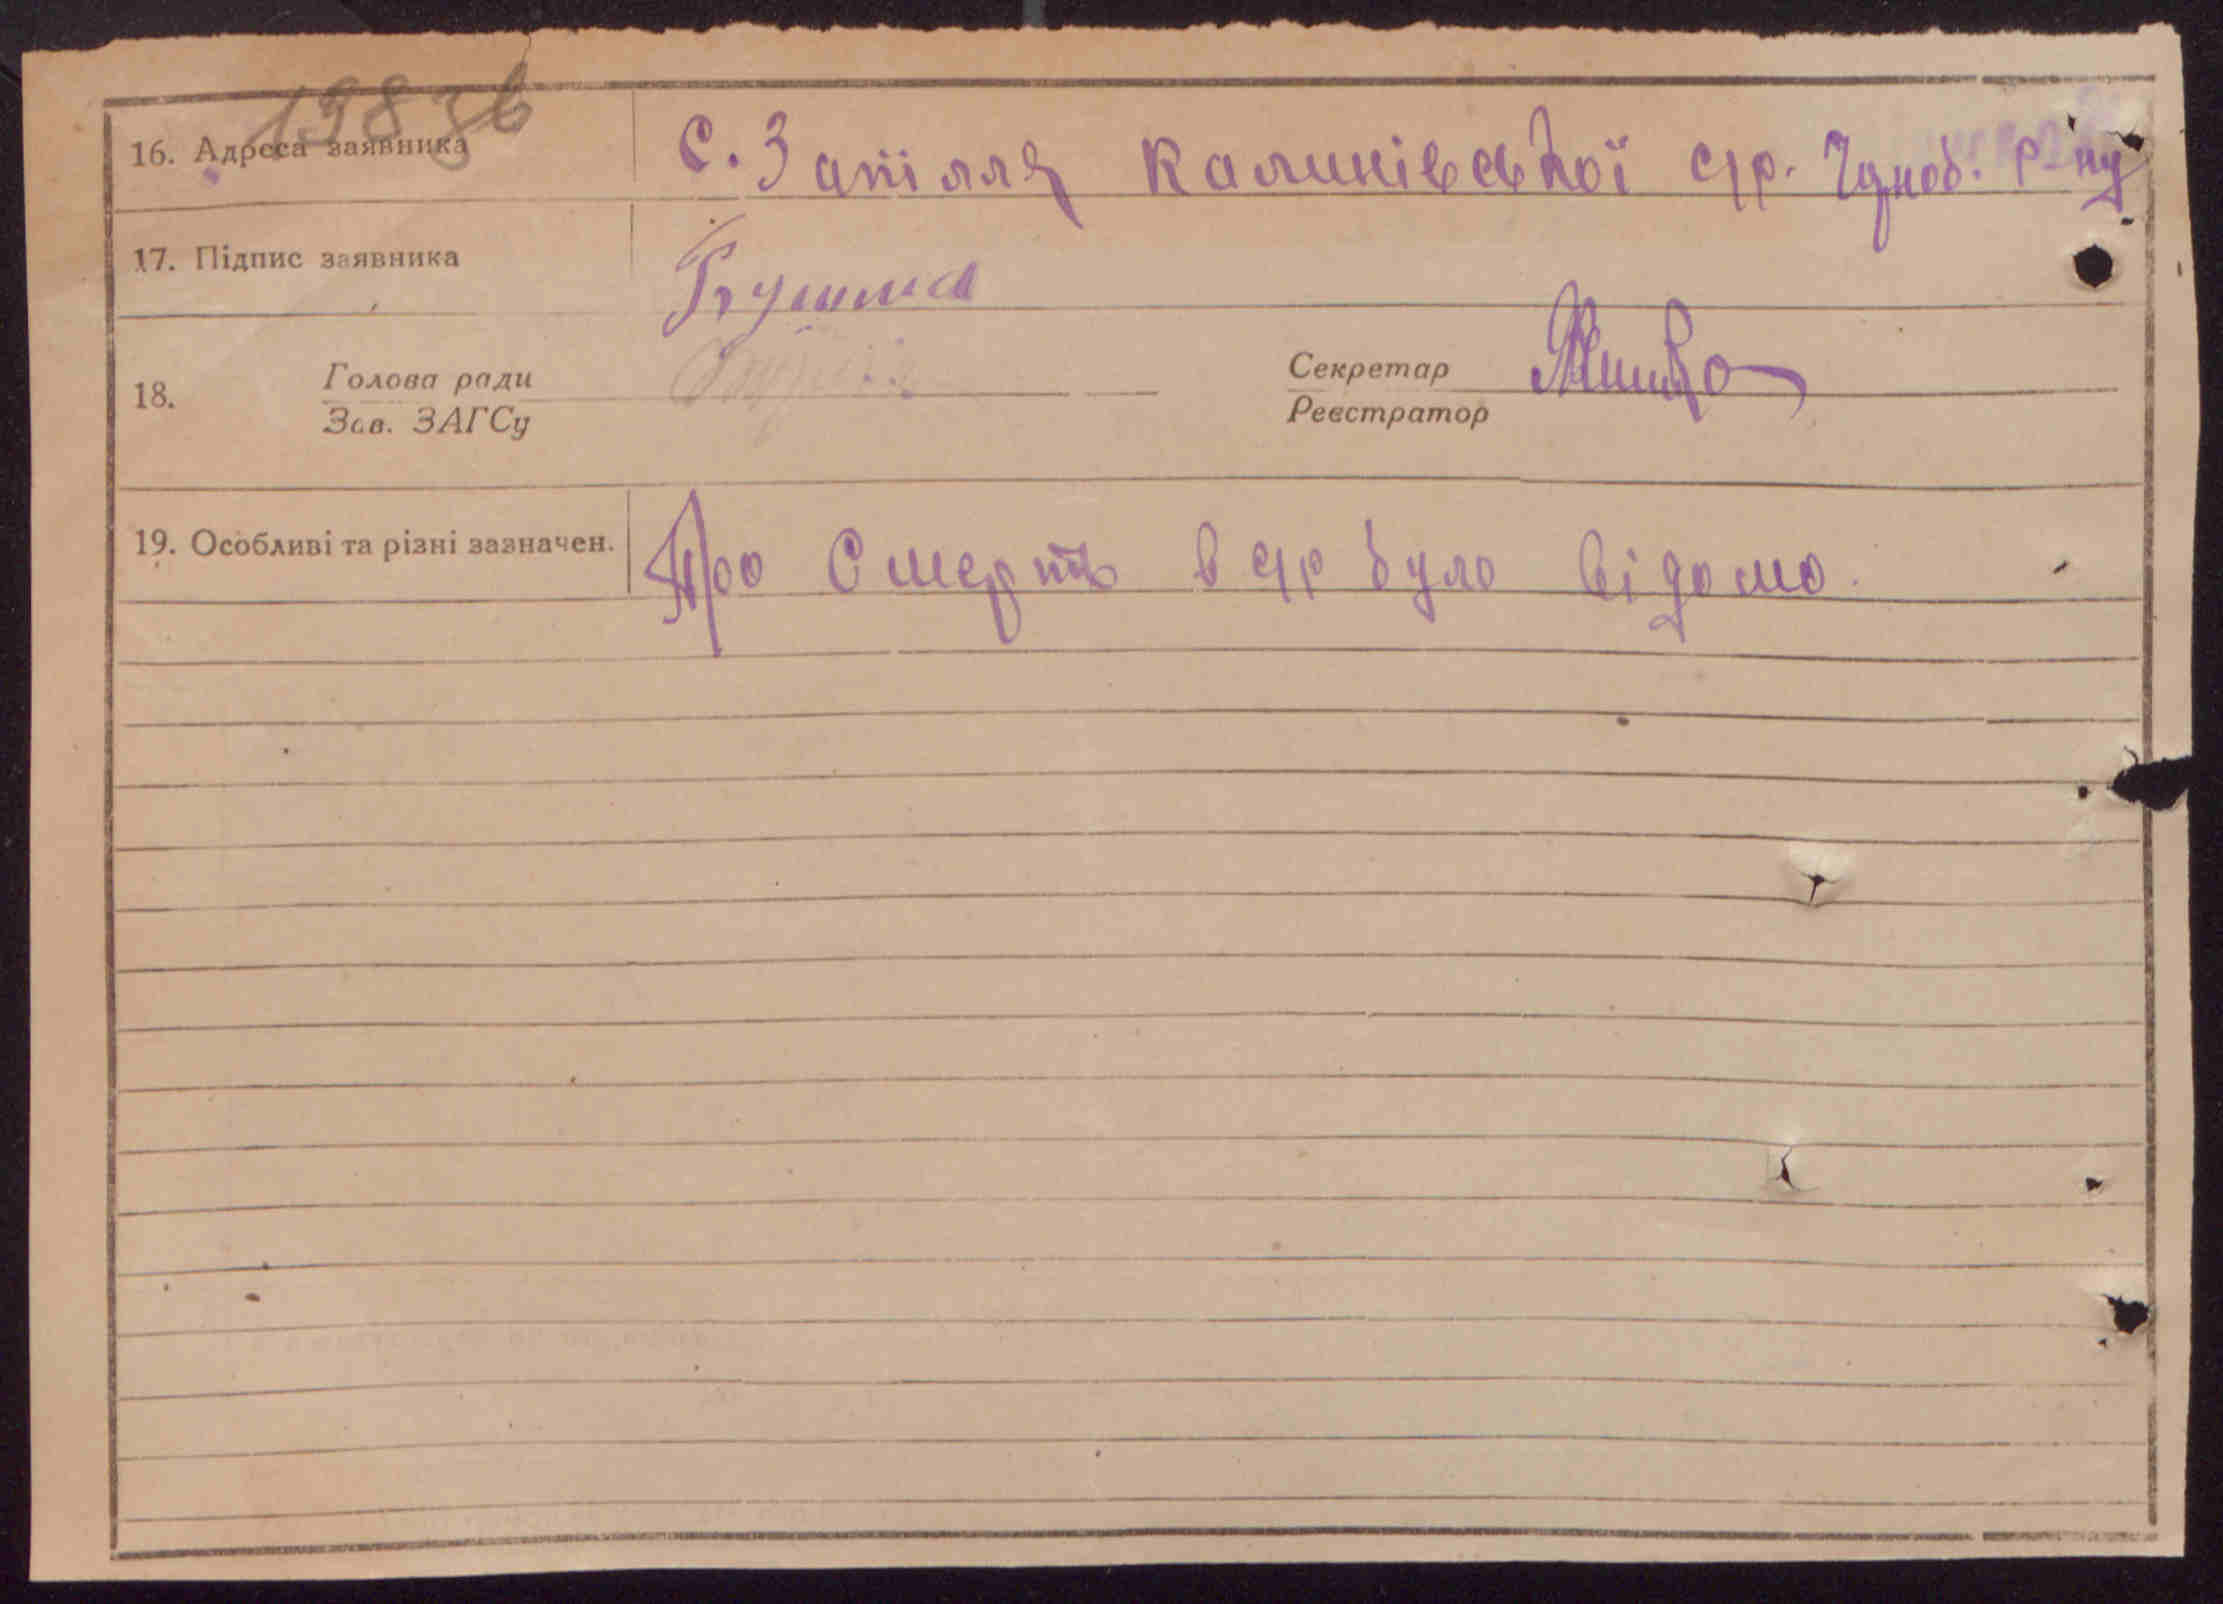 198 зв
16. Адреса заявника С. Запілля Калинівської с/р. Чуднів. р-ну
17. Підпис заявника
18. Голова ради Секретар
Зав. ЗАГСу Реєстратор
19. Особливі та різні зазначен. Про смерть в с/р було відомо.